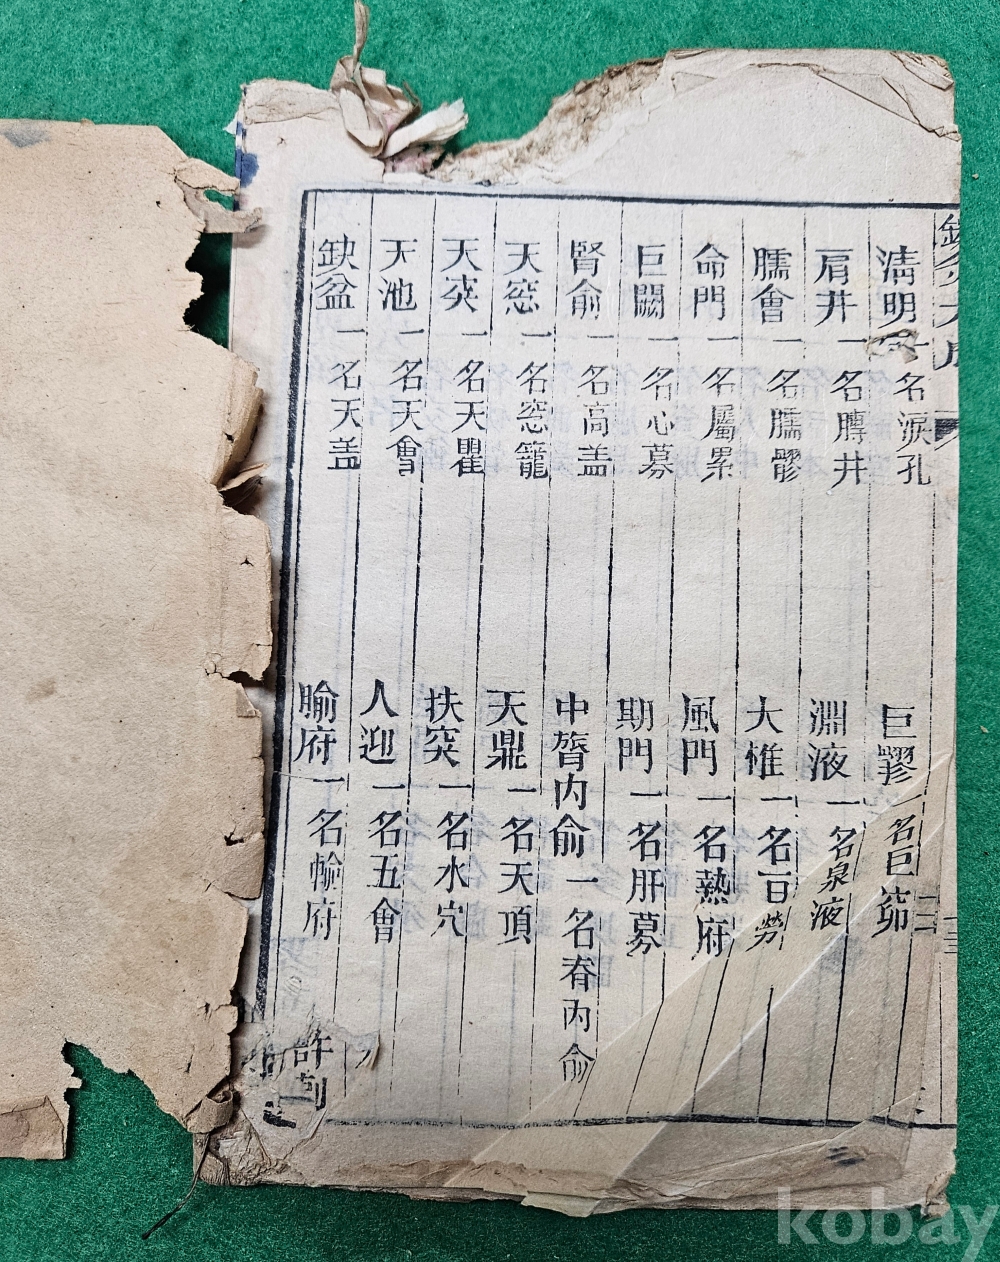 清明 一名淚孔
巨髎 一名巨窌
肩井 一名膊井
淵液 一名泉液
臑會 一名臑髎
大惟 一名百勞
命門 一名屬累
風門 一名熱府
巨闕 一名心募
期門 一名肝募
腎俞 一名高盖
中膂內俞 一名脊內俞
天窓 一名窓籠
天鼎 一名天頂
天突 一名天瞿
扶突 一名水穴
天池 一名天會
人迎 一名五會
缺盆 一名天盖
腧府 一名輸府
kobay